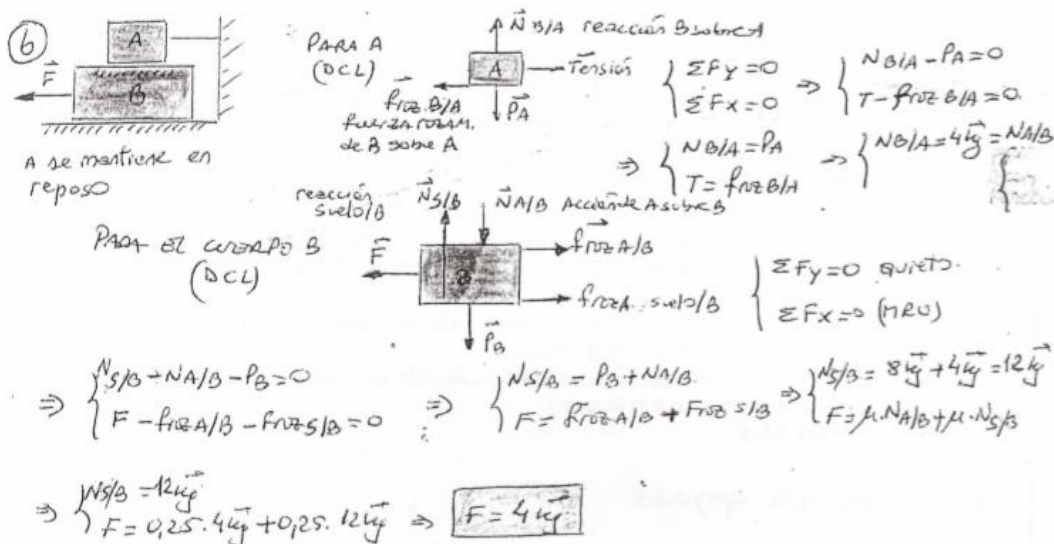 6
A
B
F⃗
A se mantiene en
reposo
PARA A
(DCL)
N⃗ B/A reacción B sobre A
A
Tensión
froz B/A
fuerza rozam.
de B sobre A
P⃗A
{ ΣFy=0
ΣFx=0
⇒ { NB/A - PA=0
T - froz B/A=0
⇒ { NB/A = PA
T = froz B/A
⇒ { NB/A = 4kg⃗ = NA/B
PARA EL CUERPO B
(DCL)
reacción
suelo/B
N⃗S/B
N⃗A/B Acción de A sobre B
F⃗
B
froz A/B
froz. suelo/B
P⃗B
{ ΣFy=0 quieto.
ΣFx=0 (MRU)
⇒ { NS/B - NA/B - PB=0
F - froz A/B - Froz S/B=0
⇒ { NS/B = PB + NA/B
F = froz A/B + Froz S/B
⇒ { NS/B = 8kg⃗ + 4kg⃗ = 12kg⃗
F = μ.NA/B + μ.NS/B
⇒ { NS/B = 12kg⃗
F = 0,25. 4kg⃗ + 0,25. 12kg⃗ ⇒ F = 4kg⃗